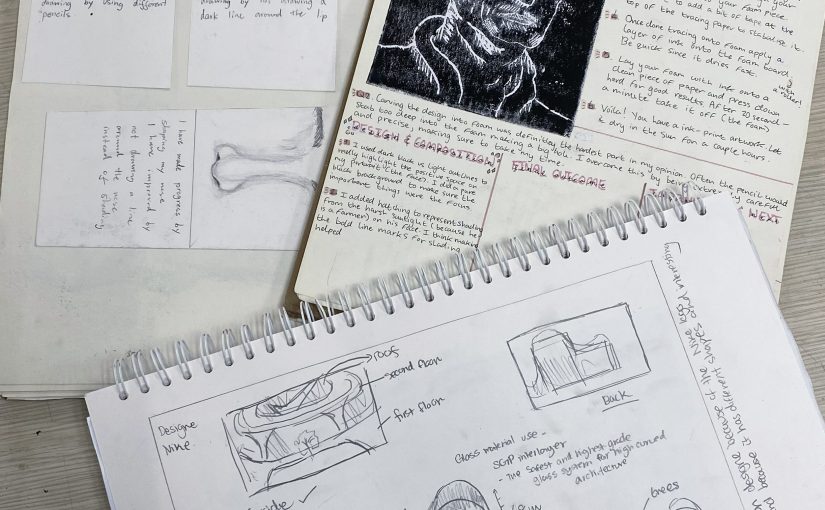 drawing by using different
pencils.
drawing by not drawing a
dark line around the lip
I have made progress by
shaping my nose
I have improved by
not drawing a line
around the nose
instead of shading
your foam piece
to add a bit of tape at the
top of the tracing paper to stabalise it.
4. Once done tracing onto foam apply a
layer of ink onto the foam board
Be quick since it dries fast.
5. Lay your foam with ink onto a
clean piece of paper and press down with
hard for good results. After 30 second -
a minute take it off (the foam)
6. Voila! You have a ink-print artwork. Let
it dry in the sun for a couple hours.
Carving the design into foam was definitley the hardest part in my opinion. Often the pencil would
stab too deep into the foam making a big hole. I overcome this by being extremely careful
and precise, making sure to take my time.
DESIGN & COMPOSITION
I used dark black vs light outlines to
really highlight the positive space on
my portrait (the farmer). I did a pure
black background to make sure the
important thing were the focus
I added hatching to represent shading
from the harsh sunlight (because he's
a farmer) on his face. I think making
the bold line marks for shading
helped
FINAL OUTCOME
NEXT
roof
second floor
first floor
Designe
Nike
Back
Glass material use -
SGP interlayer
- The safest and highest grade
glass system for high curved
architecture
trees
designe because of the Nike logo
because it has different shapes and interesting